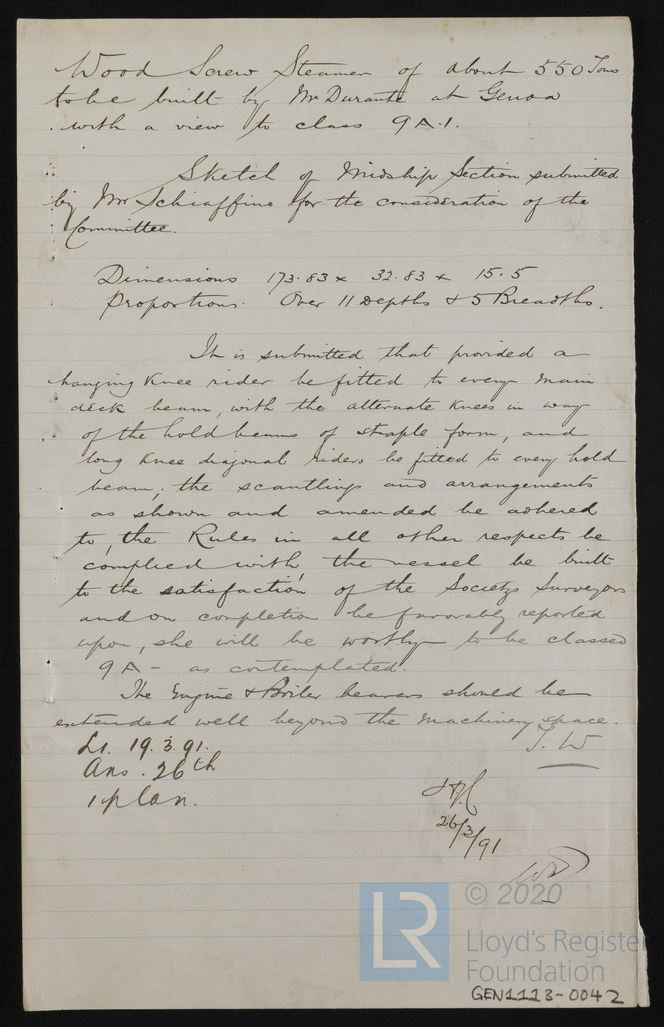 Wood Screw Steamer of about 550 Tons
to be built by Mr Durante at Genoa
with a view to class 9A.1.
Sketch of Midship Section submitted
by Mr Schiaffino for the consideration of the
Committee.
Dimensions 173.83 x 32.83 x 15.5
Proportions. Over 11 Depths & 5 Breadths.
It is submitted that provided a
hanging knee rider be fitted to every main
deck beam, with the alternate knees in way
of the hold beams of staple form, and
long knee diagonal riders be fitted to every hold
beam; the scantlings and arrangements
as shown and amended be adhered
to, the Rules in all other respects be
complied with, the vessel be built
to the satisfaction of the Societys Surveyors
and on completion be favorably reported
upon, she will be worthy to be classed
9A - as contemplated.
The Engine & Boiler bearers should be
extended well beyond the machinery space.
Lr. 19.3.91.
Ans. 26th
1 plan.
26/3/91
© 2020
LR
Lloyd's Register
Foundation
GEN1113-0042